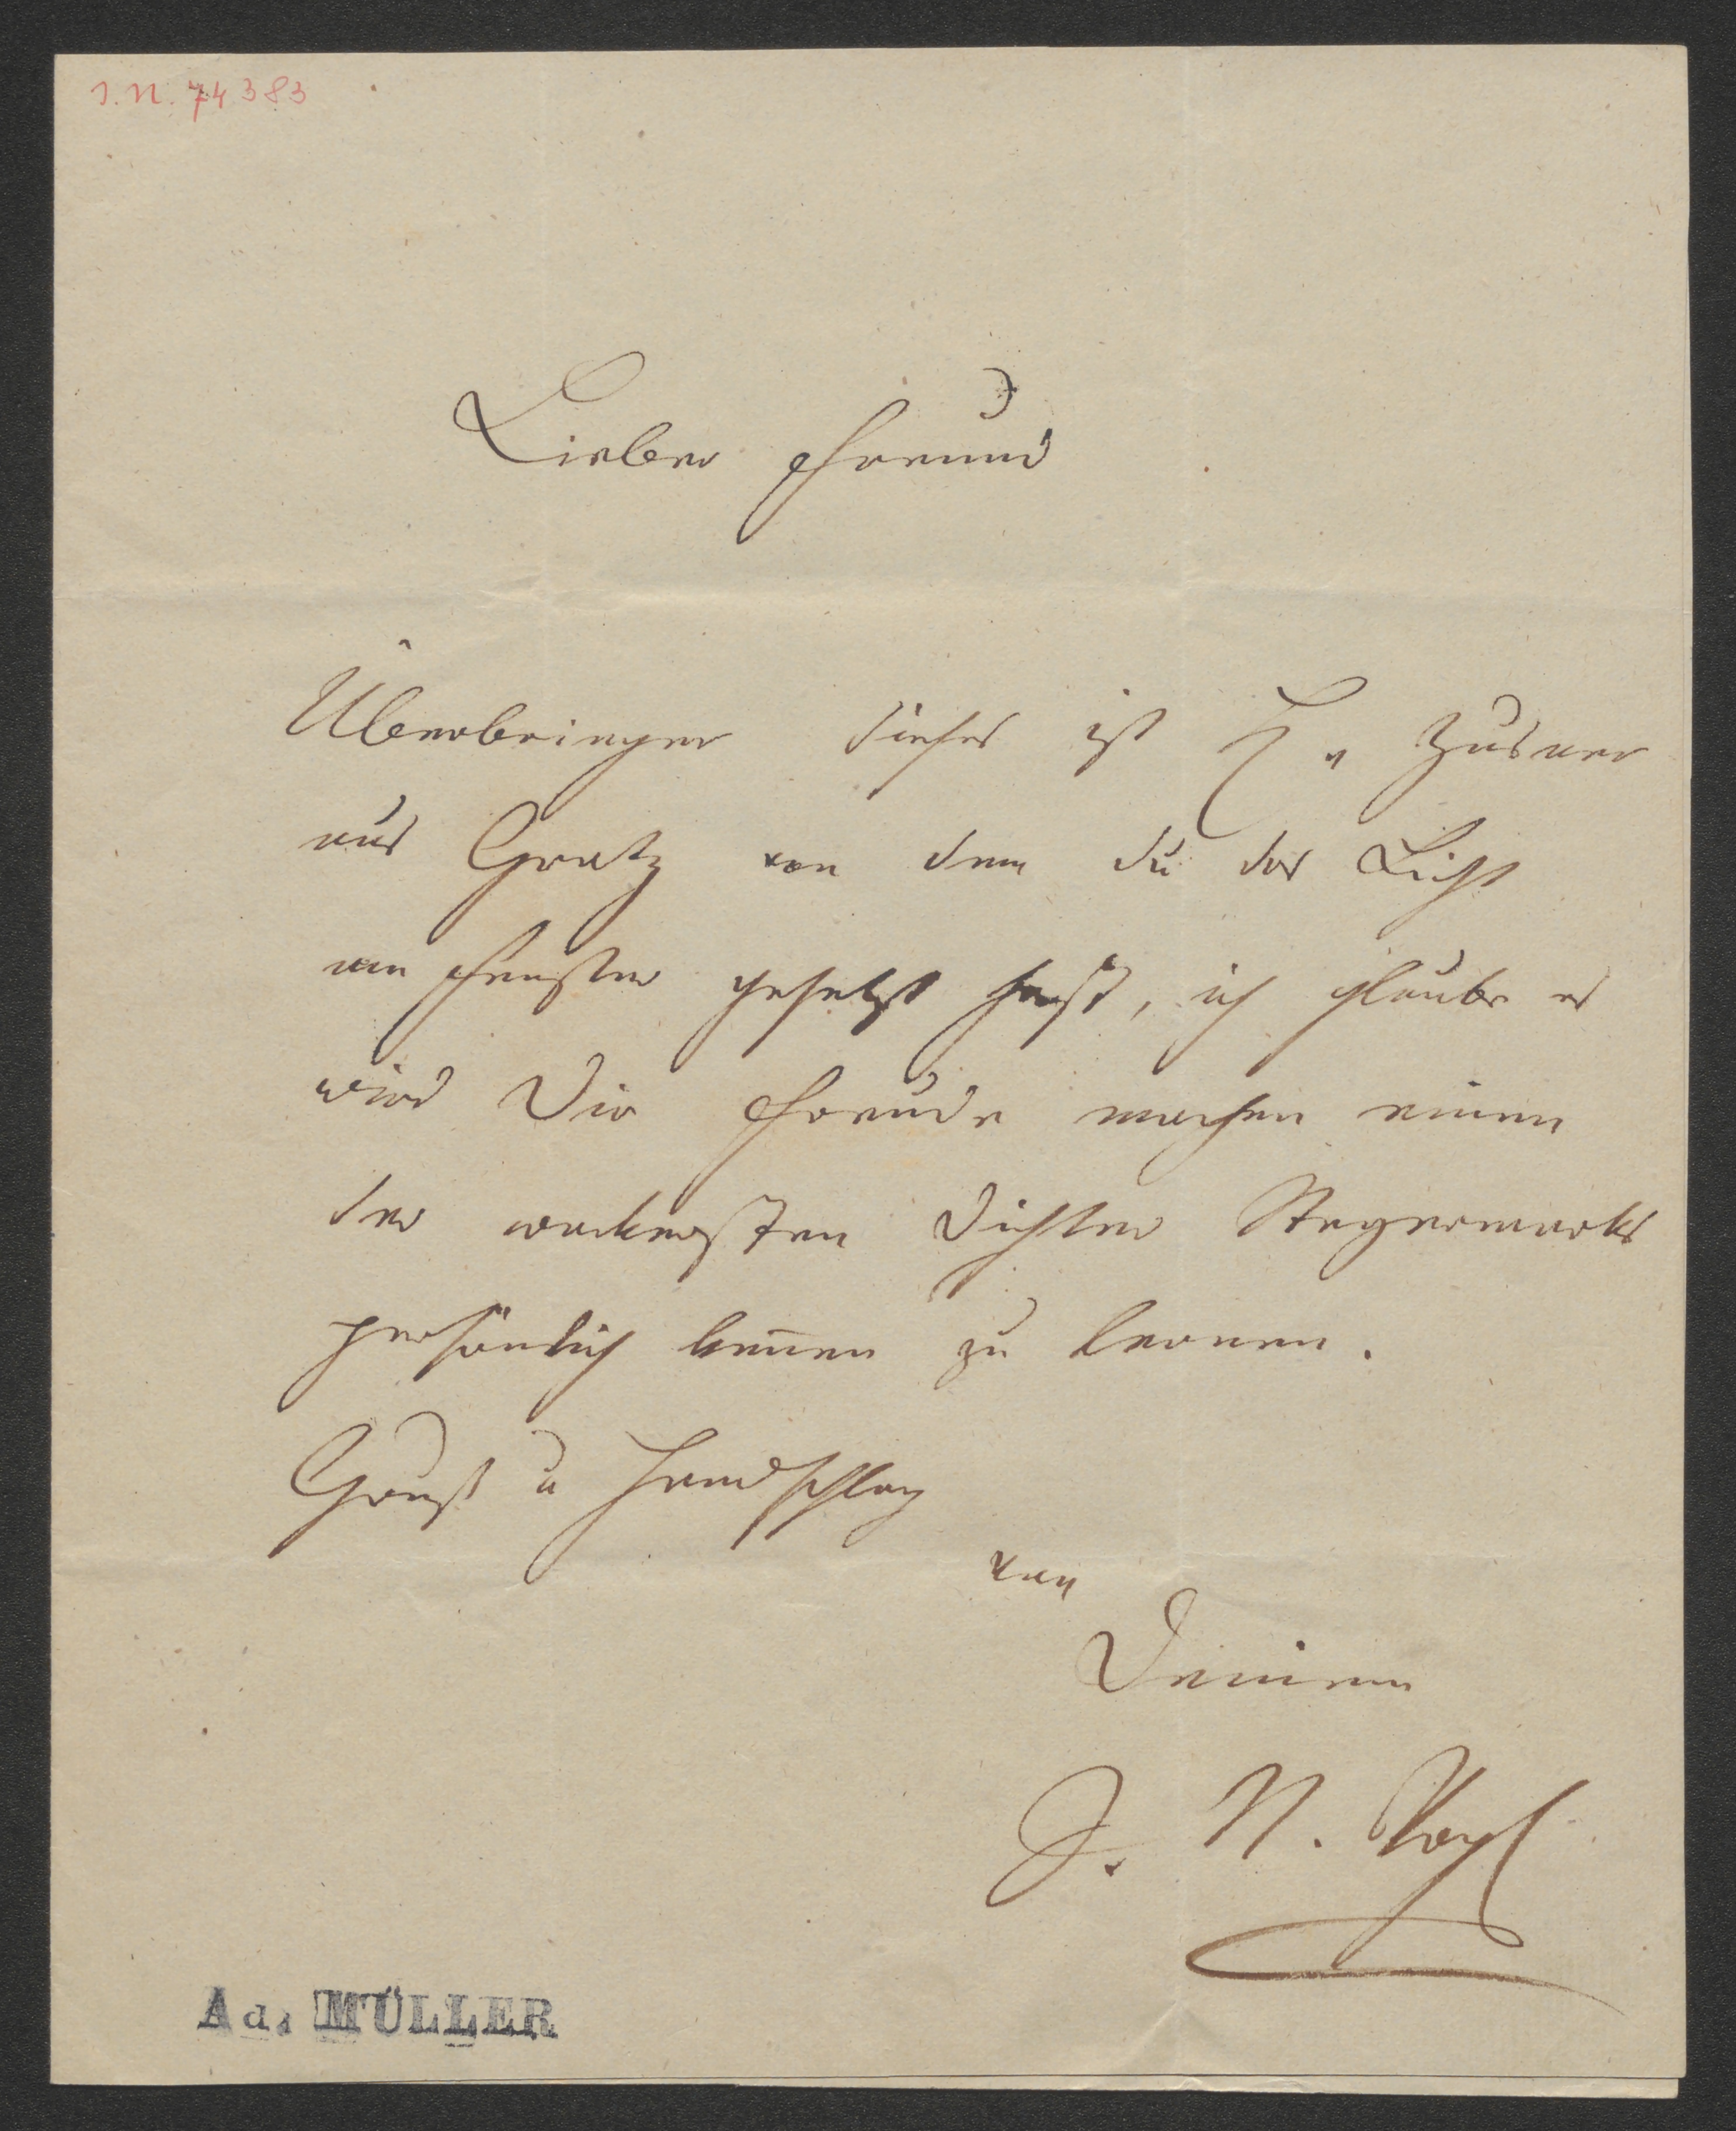 I. N. 74383
Lieber Freund
Überbringer dieses ist H. Zusner
aus Gratz von dem du das Licht
am Fenster gesetzt hast, ich glaube es
wird Dir Freude machen einen
der wackersten Dichter Steyermarks
persönlich kennen zu lernen.
Gruß u Handschlag
von
Deinem
J. N. Vogl
Ad. MÜLLER